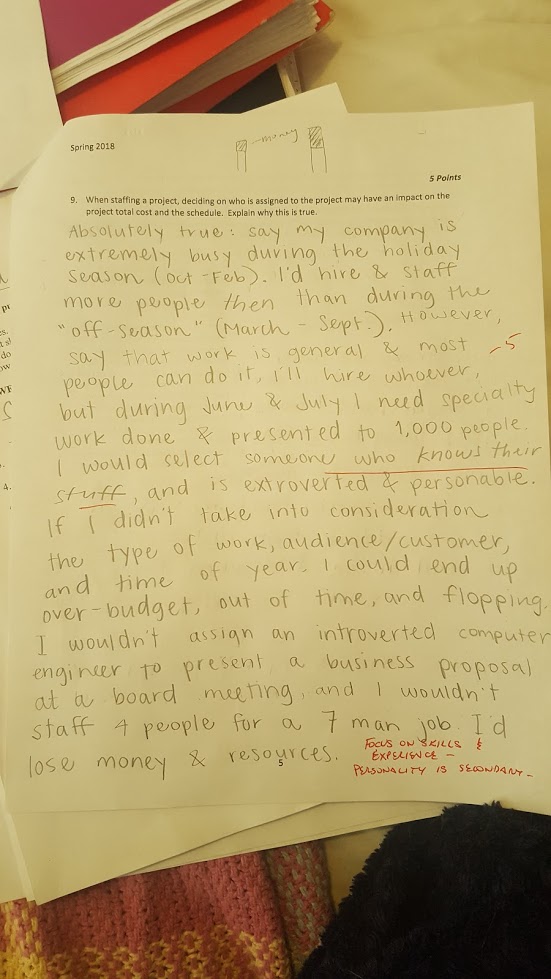 money
Spring 2018
5 Points
9. When staffing a project, deciding on who is assigned to the project may have an impact on the
project total cost and the schedule. Explain why this is true.
Absolutely true: say my company is
extremely busy during the holiday
season (Oct-Feb). I'd hire & staff
more people then than during the
"off-season" (March - Sept.). However,
say that work is general & most
-5
people can do it, I'll hire whoever,
but during June & July I need specialty
work done & presented to 1,000 people.
I would select someone who knows their
stuff, and is extroverted & personable.
If I didn't take into consideration
the type of work, audience/customer,
and time of year. I could end up
over-budget, out of time, and flopping.
I wouldn't assign an introverted computer
engineer to present a business proposal
at a board meeting, and I wouldn't
staff 4 people for a 7 man job. I'd
lose money & resources.
FOCUS ON SKILLS &
EXPERIENCE -
PERSONALITY IS SECONDARY-
5
4.